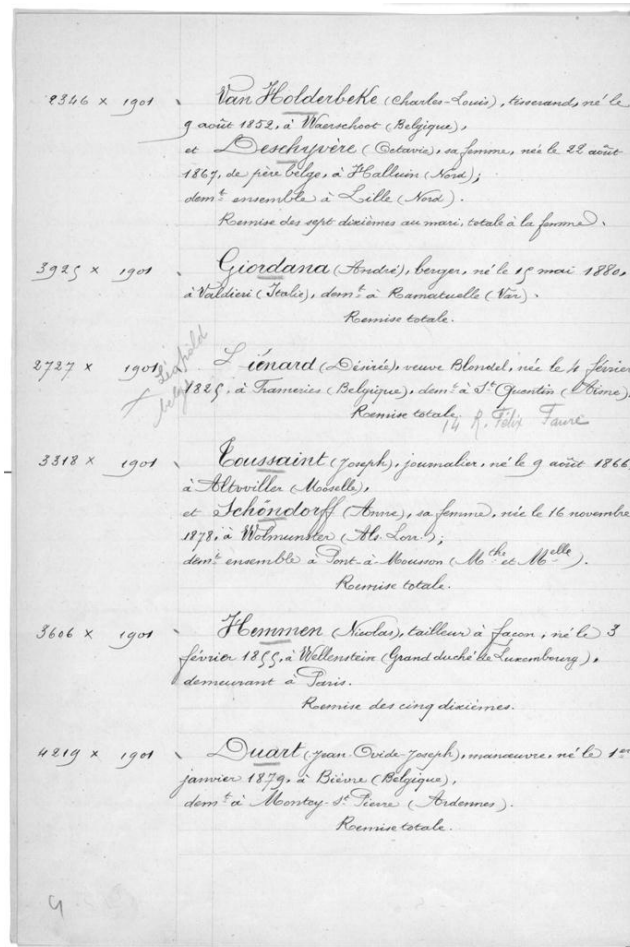 2346 x 1901 Van Holderbeke (Charles-Louis), tisserand, né le
9 août 1852, à Waerschoot (Belgique),
et Deschyvère (Octavie), sa femme, née le 22 août
1867, de père belge, à Halluin (Nord);
demt ensemble à Lille (Nord).
Remise des sept dixièmes au mari, totale à la femme.
3925 x 1901 Giordana (André), berger, né le 15 mai 1880,
à Valdieri (Italie), demt à Ramatuelle (Var).
Remise totale.
2727 x 1901 Liénard (Désirée), veuve Blondel, née le 4 février
Léopold
belge
1825, à Frameries (Belgique), demt à St Quentin (Aisne).
Remise totale. 14 R. Félix Faure
3318 x 1901 Toussaint (Joseph), journalier, né le 9 août 1866,
à Altviller (Moselle),
et Schöndorff (Anne), sa femme, née le 16 novembre
1878, à Wolmunster (Als. Lorr.);
demt ensemble à Pont-à-Mousson (Mthe et Melle).
Remise totale.
3606 x 1901 Hemmen (Nicolas), tailleur à façon, né le 3
février 1855, à Wellenstein (Grand duché de Luxembourg),
demeurant à Paris.
Remise des cinq dixièmes.
4219 x 1901 Duart (Jean-Ovide-Joseph), manœuvre, né le 1er
janvier 1879, à Bièvre (Belgique),
demt à Montcy-St Pierre (Ardennes).
Remise totale.